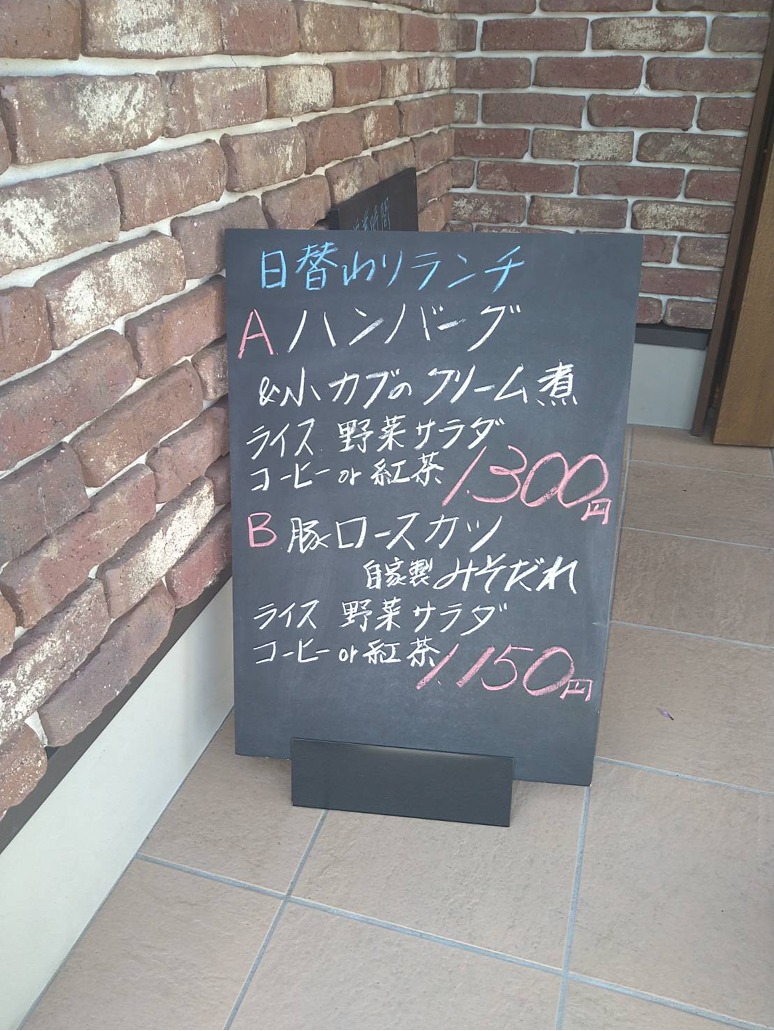 日替わりランチ
A ハンバーグ
&小カブのクリーム煮
ライス 野菜サラダ
コーヒー or 紅茶 1.300円
B 豚ロースカツ
自家製 みそだれ
ライス 野菜サラダ
コーヒー or 紅茶 1.150円